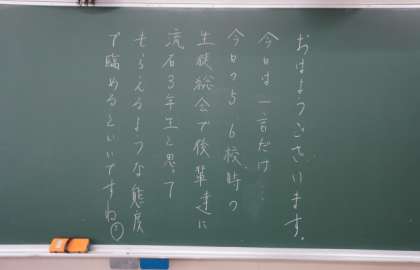 おはようございます。
今日は一言だけ…
今日の5、6校時の
生徒総会で後輩達に
流石3年生と思って
もらえるような態度
で臨めるといいですね